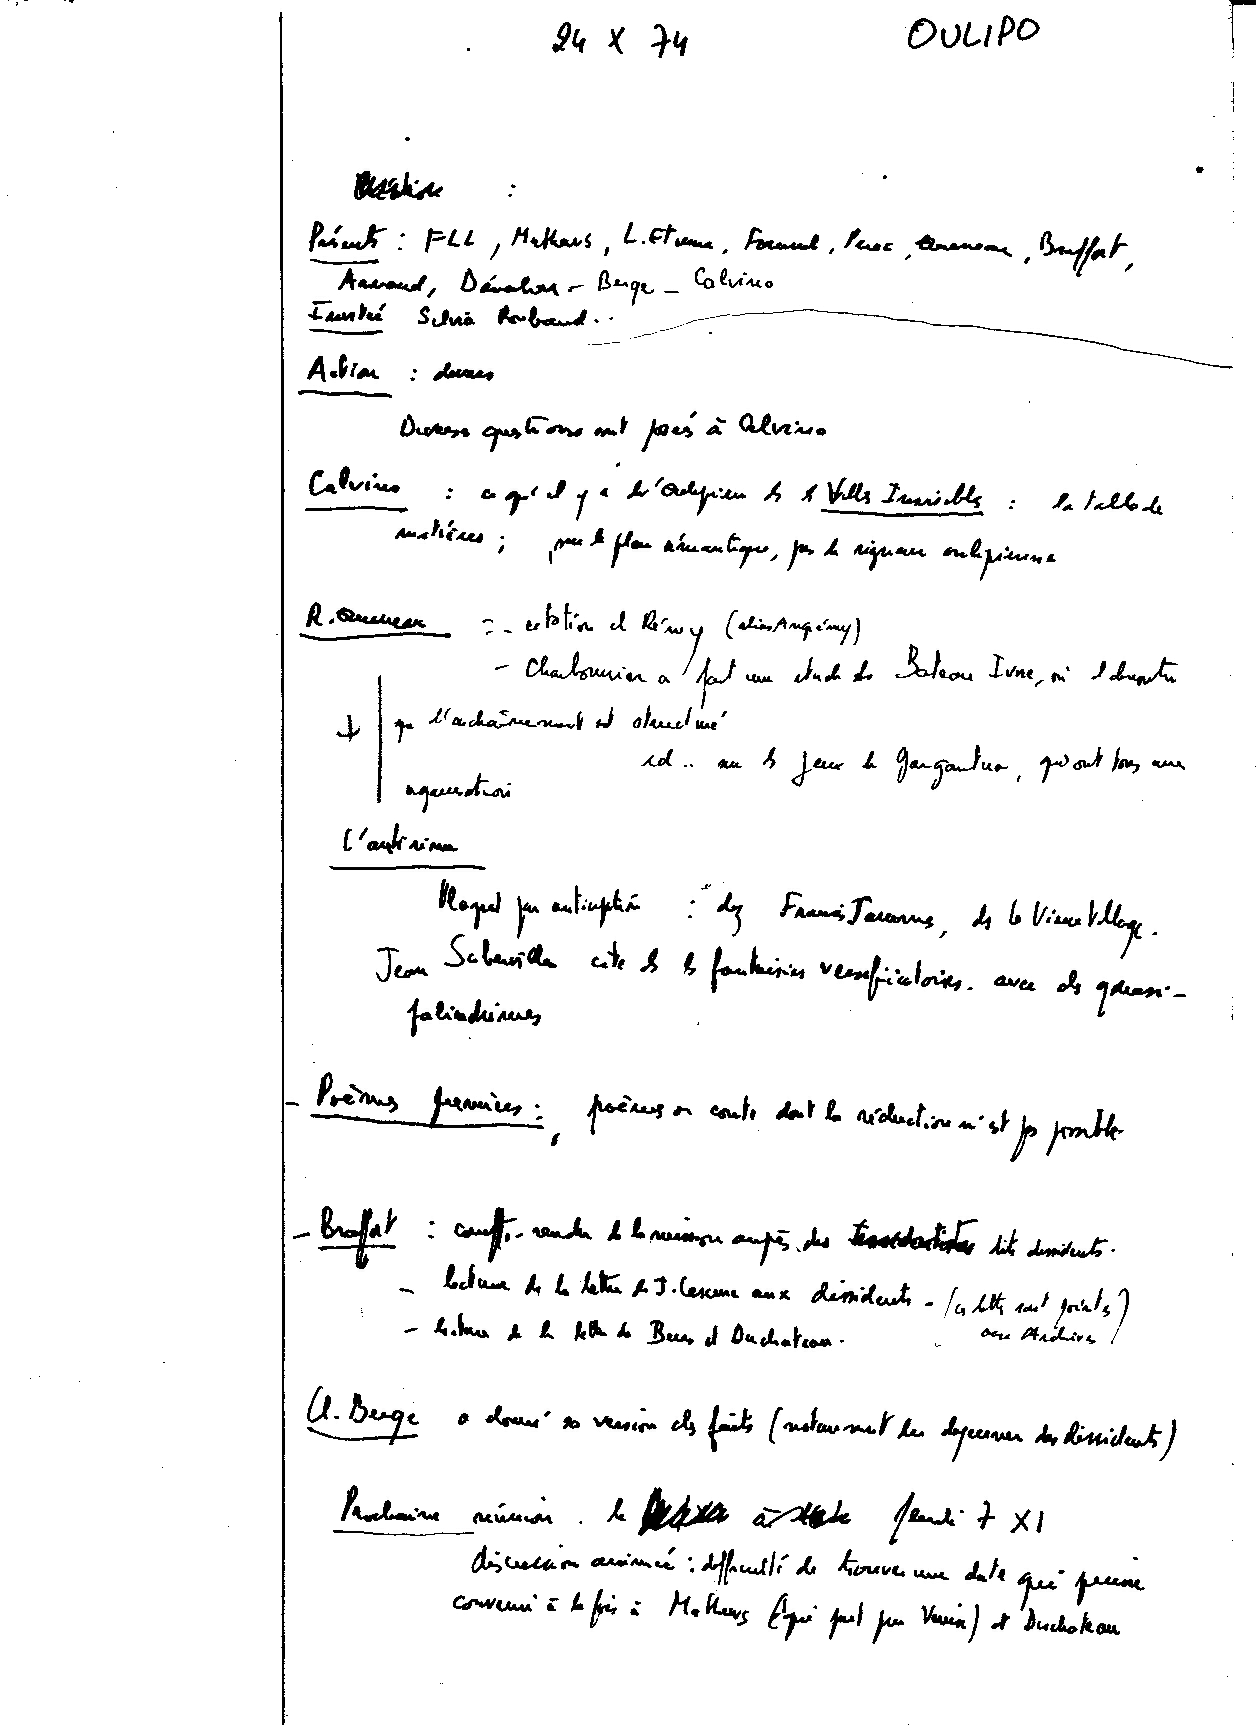 24 X 74 OULIPO
:
Présents : FLL, Mathews, L. Etienne, Fournel, Perec, Queneau, Braffort,
Arnaud, Duvalier - Berge - Calvino
Invitée Silvia Roubaud..
Action : diverses
Diverses questions sont posées à Calvino
Calvino : ce qu'il y a d'oulipien ds les Villes Invisibles : la table de
matières ; sur le plan sémantique, pas de rigueur oulipienne
R. Queneau : - citation de Rémy (alias Angrémy)
- Charbonnier a fait une étude du Bateau Ivre, où il démontre
que l'enchaînement est structuré
id.. sur les jeux de Gargantua, qui ont tous une
signification
L'antirime
Plagiat par anticipation : chez Francis Jammes, ds le Vieux Village.
Jean cite ds les fantaisies versificatoires. avec des quasi-
palindromes
- Poèmes premiers : poèmes ou conte dont la réduction n'est pas possible
- Braffort : compte-rendu de la mission auprès des dits dissidents.
- lecture de la lettre de J. Lescure aux dissidents - (ces lettres sont jointes)
aux Archives
- lecture de la lettre de Bens et Duchateau.
Cl. Berge a donné sa version des faits (notamment du déjeuner des dissidents)
Prochaine réunion. le Jeudi 7 XI
discussion animée : difficulté de trouver une date qui puisse
convenir à la fois à Mathews (qui part pour Venise) et Duchateau